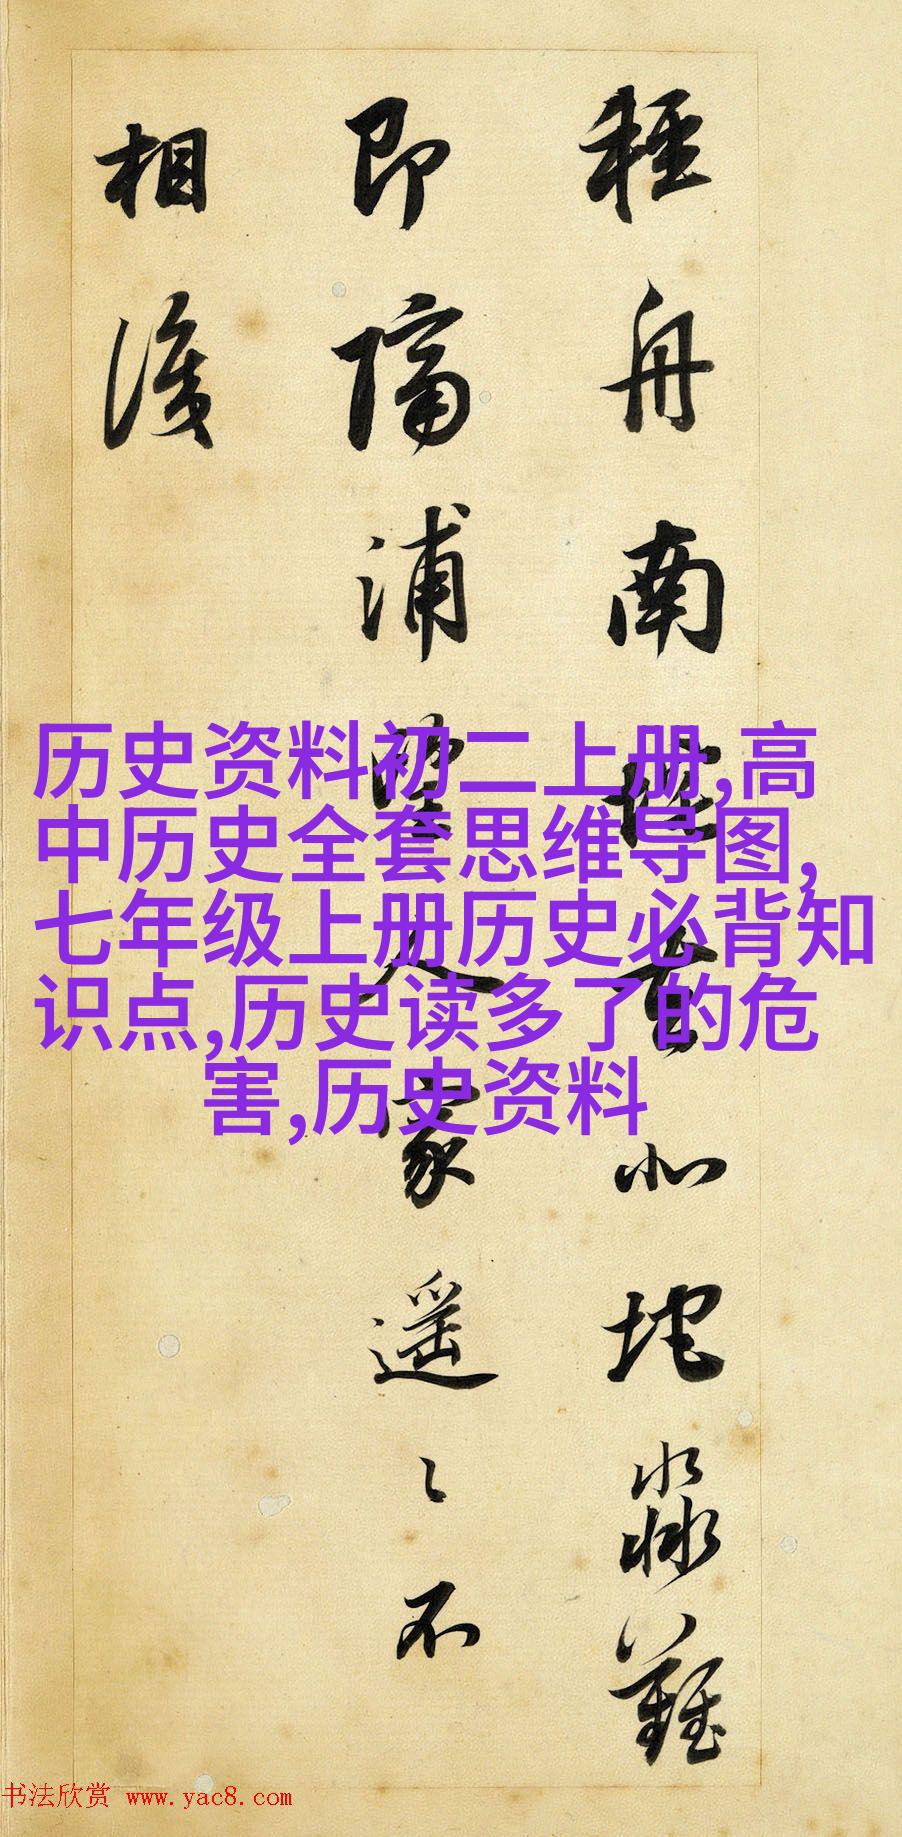 輕舟南垞去北垞淼難
即隔浦望人家遙〻不
相識
历史资料初二上册,高
中历史全套思维导图,
七年级上册历史必背知
识点,历史读多了的危
害,历史资料
书法欣赏 www.yac8.com